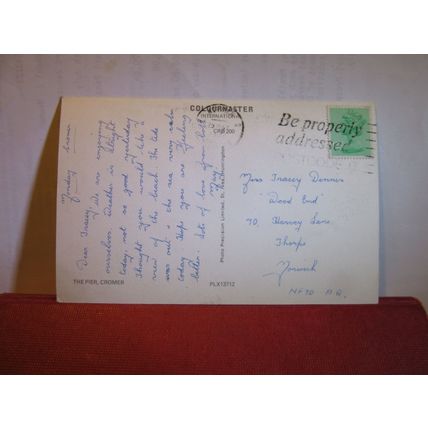 COLOURMASTER
INTERNATIONAL
Be properly
addressed
Monday
Dear Tracey, We are enjoying
ourselves. Weather is bright
today not so good yesterday
Thought you would like a
view of the beach. The tide
was out & the sea very calm
today. Hope you are feeling
better. Lots of love from both
THE PIER, CROMER
PLX13712
Photo Precision Limited, St. Ives, Huntingdon
Miss Tracey Dennis
"Wood End"
70, Harvey Lane,
Thorpe
Norwich